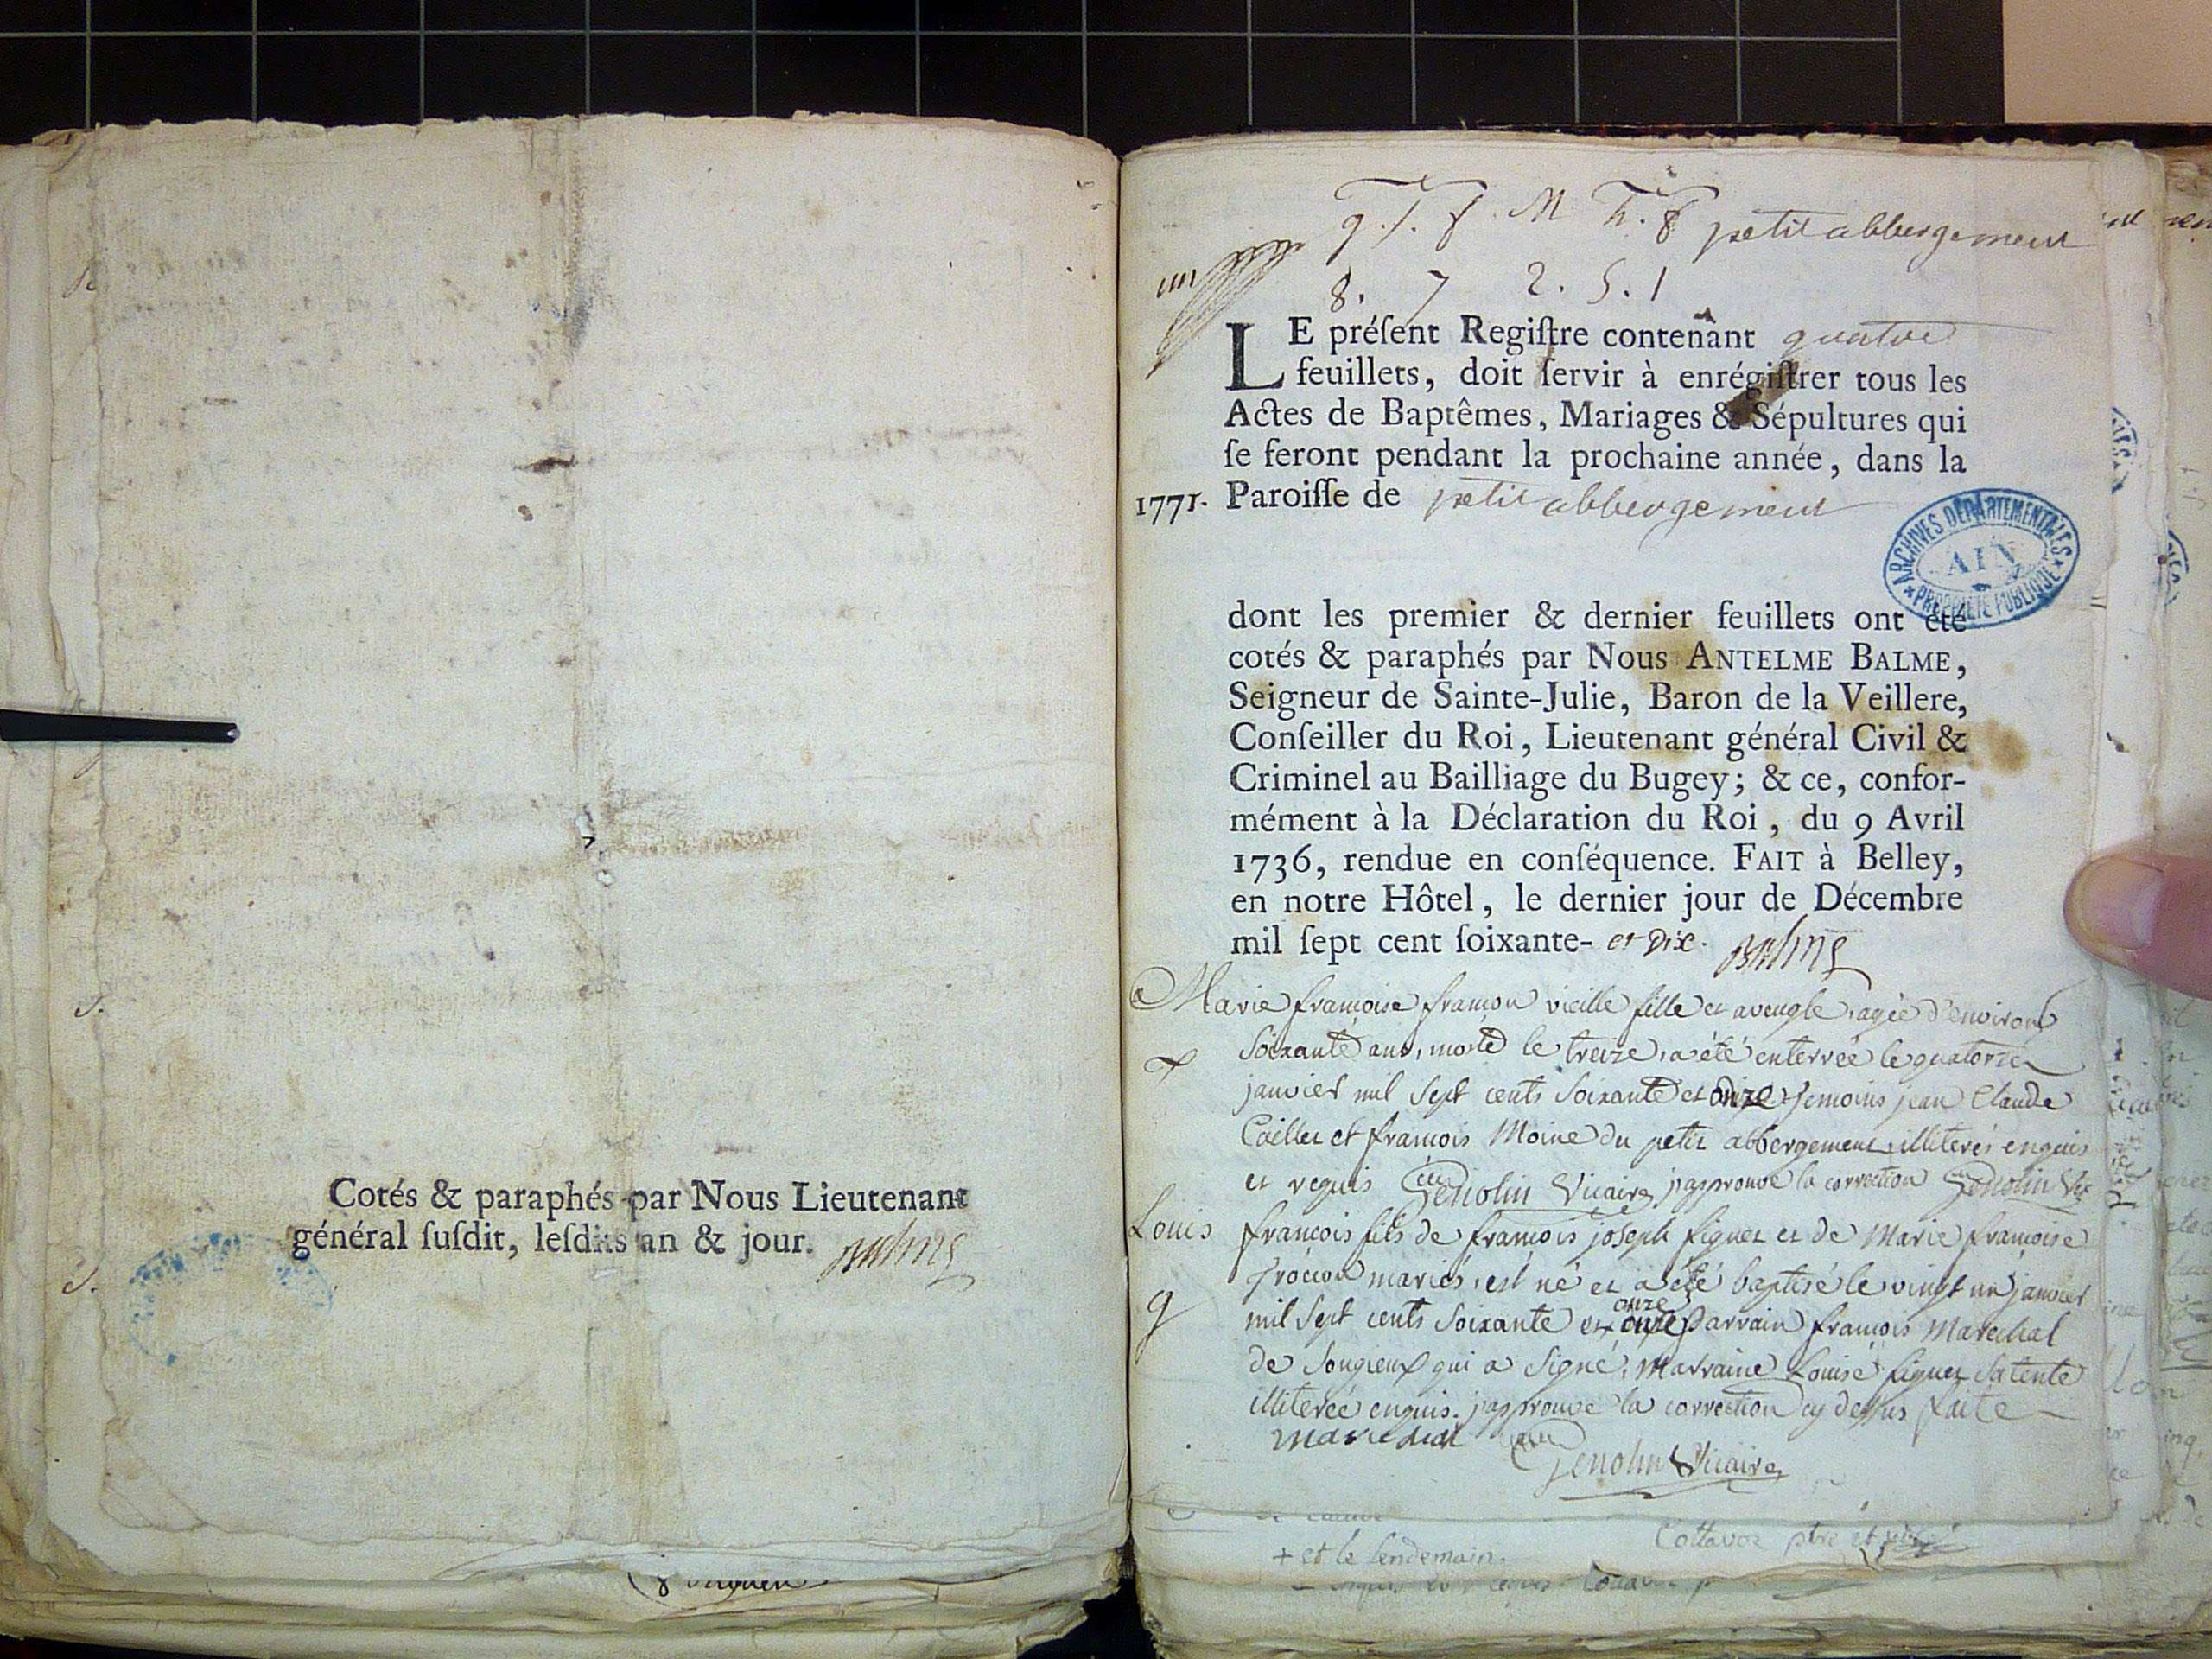 Cotés & paraphés par Nous Lieutenant
général ſuſdit, leſdits an & jour. Balme
g. f. M petit abbergement
8. 7 2. 5. 1
LE préſent Regiſtre contenant quatre
feuillets, doit ſervir à enrégiſtrer tous les
Actes de Baptêmes, Mariages & Sépultures qui
ſe feront pendant la prochaine année, dans la
1771. Paroiſſe de petit abbergement
ARCHIVES DÉPARTEMENTALES
AIN
PROPRIÉTÉ PUBLIQUE
dont les premier & dernier feuillets ont été
cotés & paraphés par Nous ANTELME BALME,
Seigneur de Sainte-Julie, Baron de la Veillere,
Conſeiller du Roi, Lieutenant général Civil &
Criminel au Bailliage du Bugey; & ce, confor-
mément à la Déclaration du Roi, du 9 Avril
1736, rendue en conſéquence. FAIT à Belley,
en notre Hôtel, le dernier jour de Décembre
mil ſept cent ſoixante- et Dix. Balme
Marie francoise framon vieille fille et aveugle, agée d'environ
soixante ans, morte le treize, a été enterrée le quatorze
janvier mil sept cents soixante et onze temoins jean Claude
Caillet et francois Moine du petit abbergement illiterés enquis
et requis Genolin Vicaire j'approuve la correction Genolin Vic
Louis francois fils de francois joseph figuet et de Marie francoise
mariés, est né et a été baptisé le vingt un janvier
g mil sept cents soixante et onze parrain francois Marechal
de Songieux qui a signé, Marraine Louise figuet sa tente
illiterée enquis. j'approuve la correction cy dessus faite
marechal Genolin Vicaire
Cottavoz ptre et
+ et le lendemain.